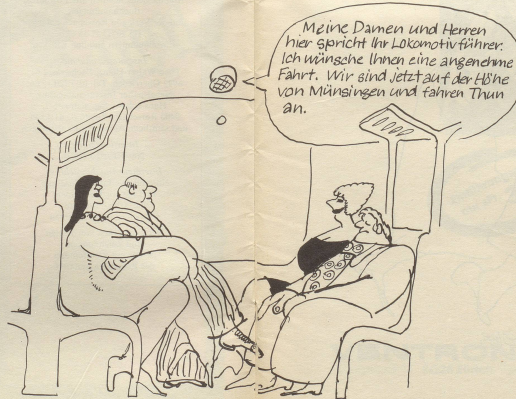 Meine Damen und Herren
hier spricht Ihr Lokomotivführer.
Ich wünsche Ihnen eine angenehme
Fahrt. Wir sind jetzt auf der Höhe
von Münsingen und fahren Thun
an.